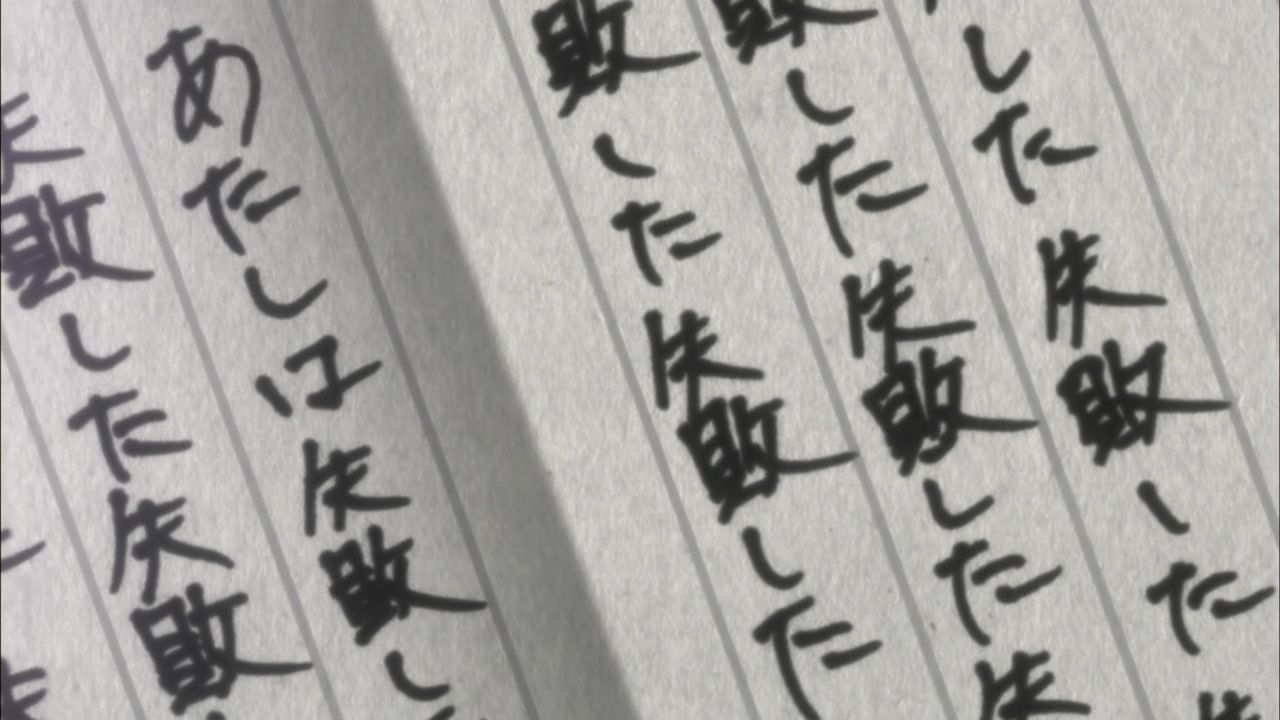 した失敗した
敗した失敗した
敗した失敗した
あたしは失敗し
敗した失敗